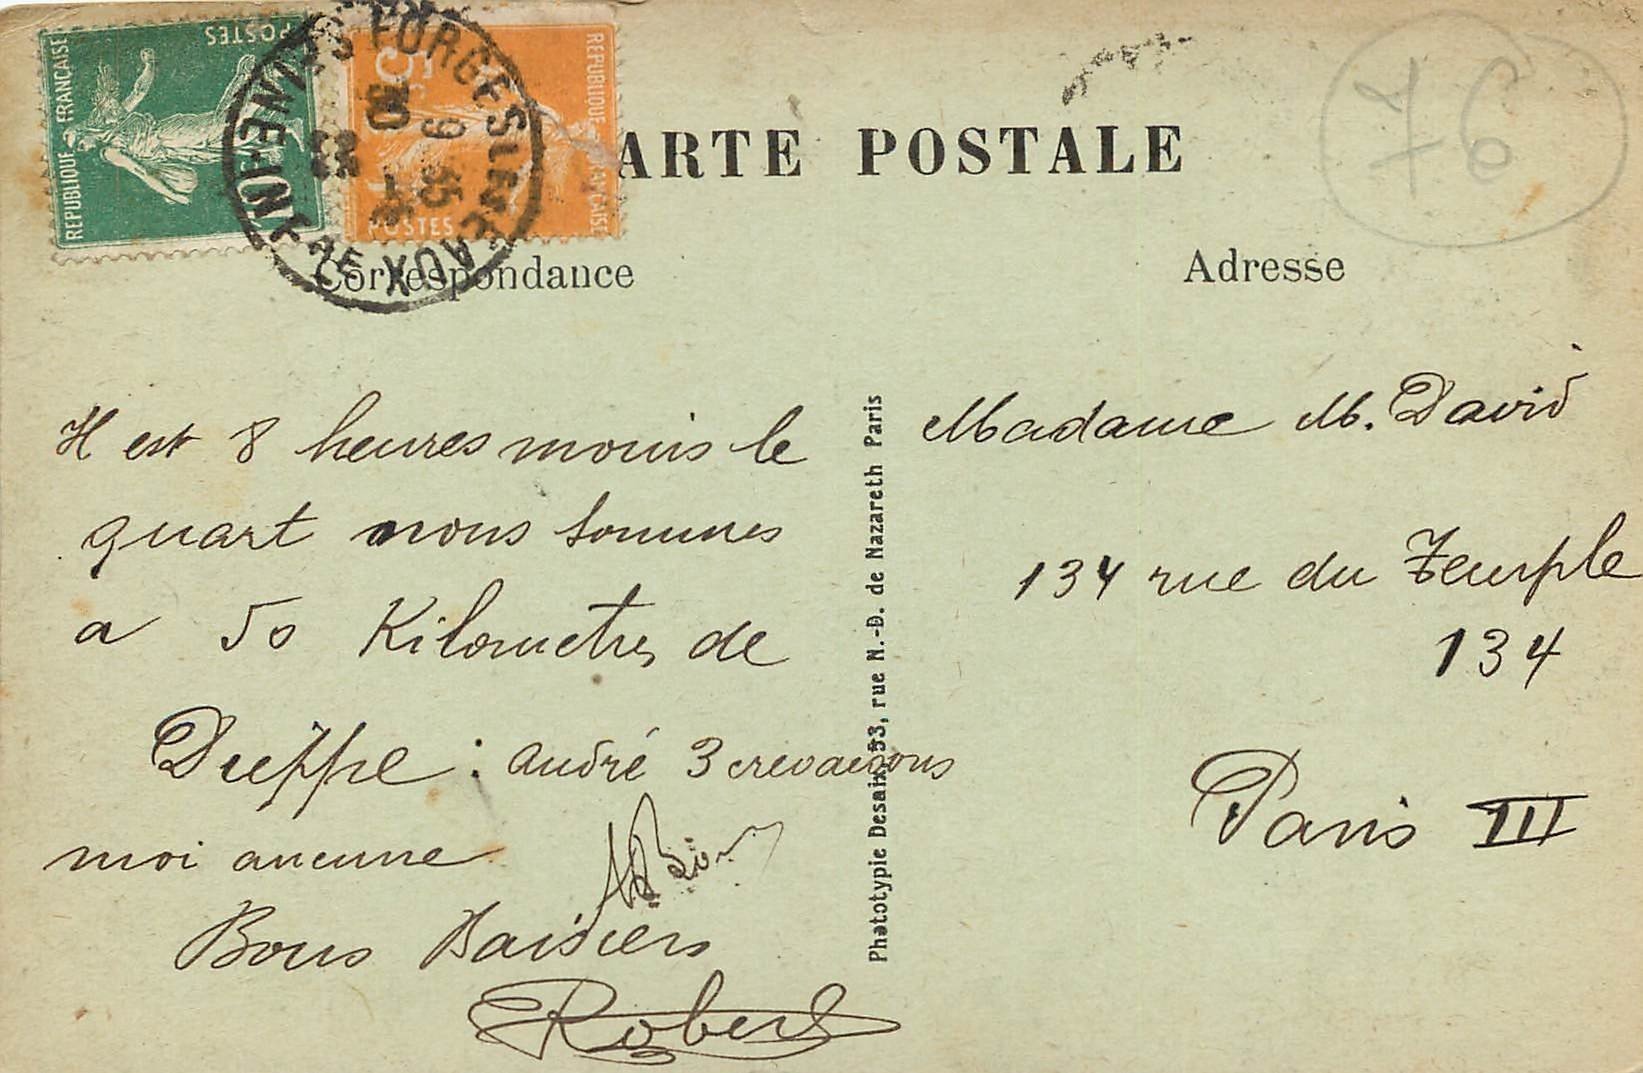 REPUBLIQUE FRANÇAISE
POSTES
REPUBLIQUE FRANÇAISE
5
POSTES
FORGES LES EAUX
SEINE-INFRE
9 35
CARTE POSTALE
76
Correspondance
Adresse
Il est 8 heures moins le
quart nous sommes
a 50 Kilometres de
Dieppe : andré 3 crevaisons
moi aucune
Bons Baisiers
Robert
Phototypie Desaix, 53, rue N.-D. de Nazareth Paris
Madame M. David
134 rue du Temple
134
Paris III